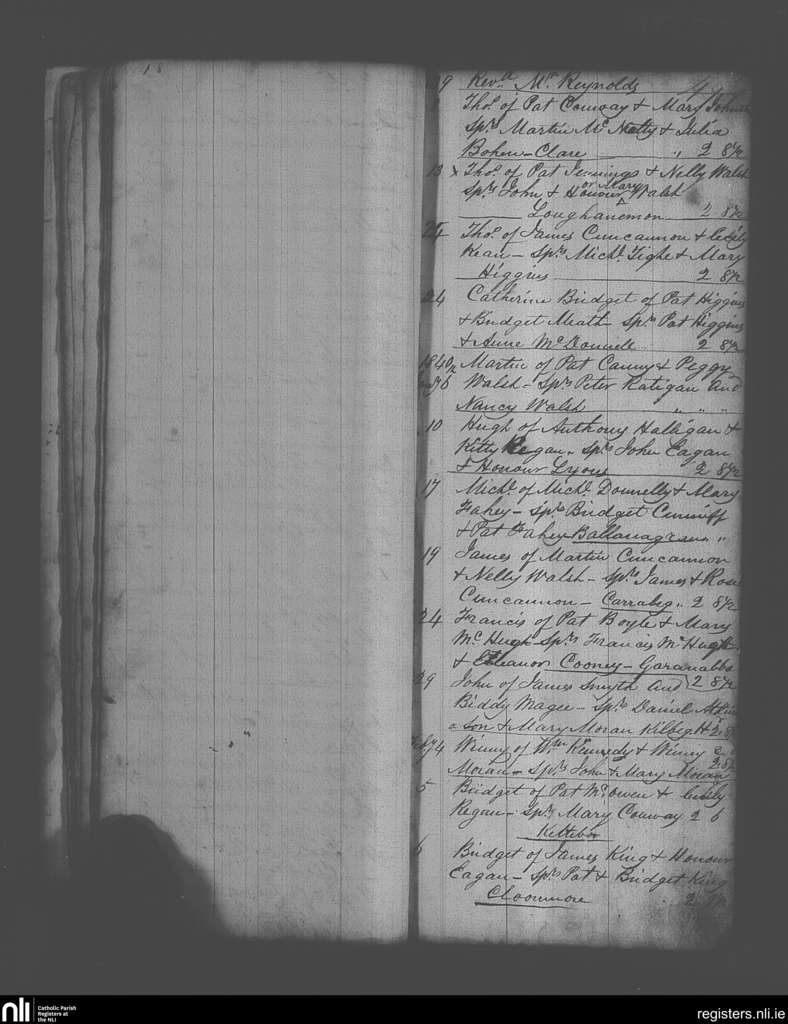 18
9 Revd. Mr. Reynolds
Thos. of Pat Conway & Mary
Sprs. Martin Mc Natty & Julia
Bohen - Clare " 2 8½
13 x Thos. of Pat Jennings & Nelly Walsh
or Mary
Sprs. John & Honour Walsh
Loughanemon 2 8½
24 Thos. of James Cuncannon & Cecily
Kean - Sprs. Michl. Tighe & Mary
Higgins 2 8½
24 Catherine Bridget of Pat Higgins
& Bridget Meath Sprs. Pat Higgins
& Anne McDonnell 2 8½
1840 Martin of Pat Canny & Peggy
6 Walsh - Sprs. Peter Ratigan and
Nancy Walsh " " "
10 Hugh of Anthony Halligan &
Kitty Regan - Sprs. John Eagan
& Honour Lyons 2 8½
17 Michl. of Michl. Donnelly & Mary
Fahey - Sprs. Bridget Cunniff
& Pat Fahey " "
19 James of Martin Cuncannon
& Nelly Walsh - Sprs. James & Rose
Cuncannon - Carrabeg " 2 8½
24 Francis of Pat Boyle & Mary
McHugh - Sprs. Francis McHugh
& Eleanor Cooney - Garanabba
29 John of James Smyth and 2 8½
Biddy Magee - Sprs. Daniel
son & Mary Moran
4 Winny of Wm. Kennedy & Winny
Moran - Sprs. John & Mary Moran
5 Bridget of Pat McOwen & Cecily
Regan - Sprs. Mary Conway 2 6
6 Bridget of James King & Honour
Eagan - Sprs. Pat & Bridget King
Cloonmore
nli Catholic Parish
Registers at
the NLI
registers.nli.ie